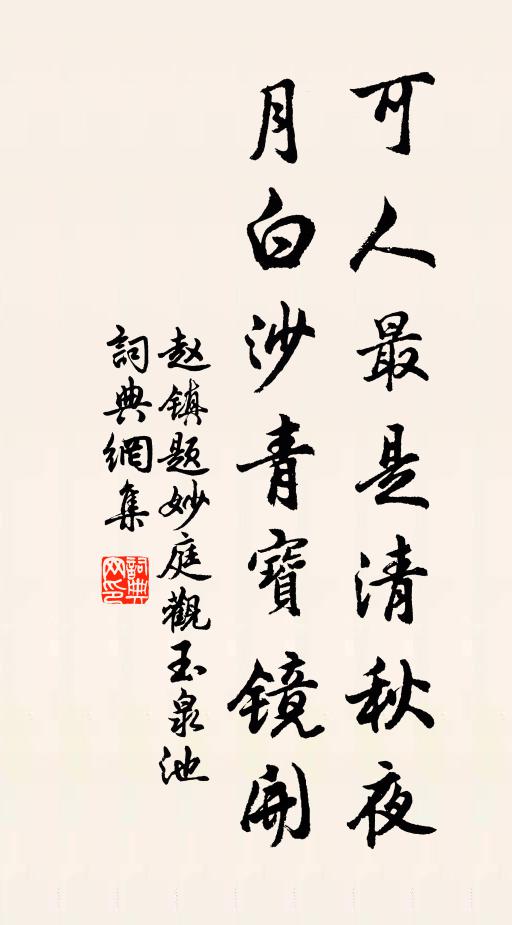 可人最是清秋夜
月白沙青寶鏡開
赵镇题妙庭觀玉泉池
詞典網集
詞典网印